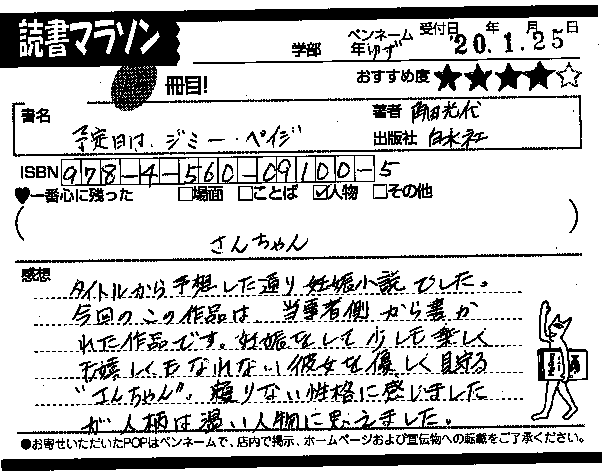 読書マラソン
学部 年 ペンネーム ゆず 受付日 '20年1月25日
冊目!
おすすめ度 ★★★★☆
書名 予定日は、ジミー・ペイジ
著者 角田光代
出版社 白水社
ISBN 978-4-560-09100-5
♥一番心に残った □場面 □ことば ☑人物 □その他
( さんちゃん )
感想
タイトルから予想した通り妊娠小説でした。
今回のこの作品は 当事者側から書か
れた作品です。妊娠をして少しも楽しく
も嬉しくもなれない彼女を優しく見守る
"さんちゃん"。頼りない性格に感じました
が人柄は温い人物に思えました。
●お寄せいただいたPOPはペンネームで、店内で掲示、ホームページおよび宣伝物への転載をご了承ください。